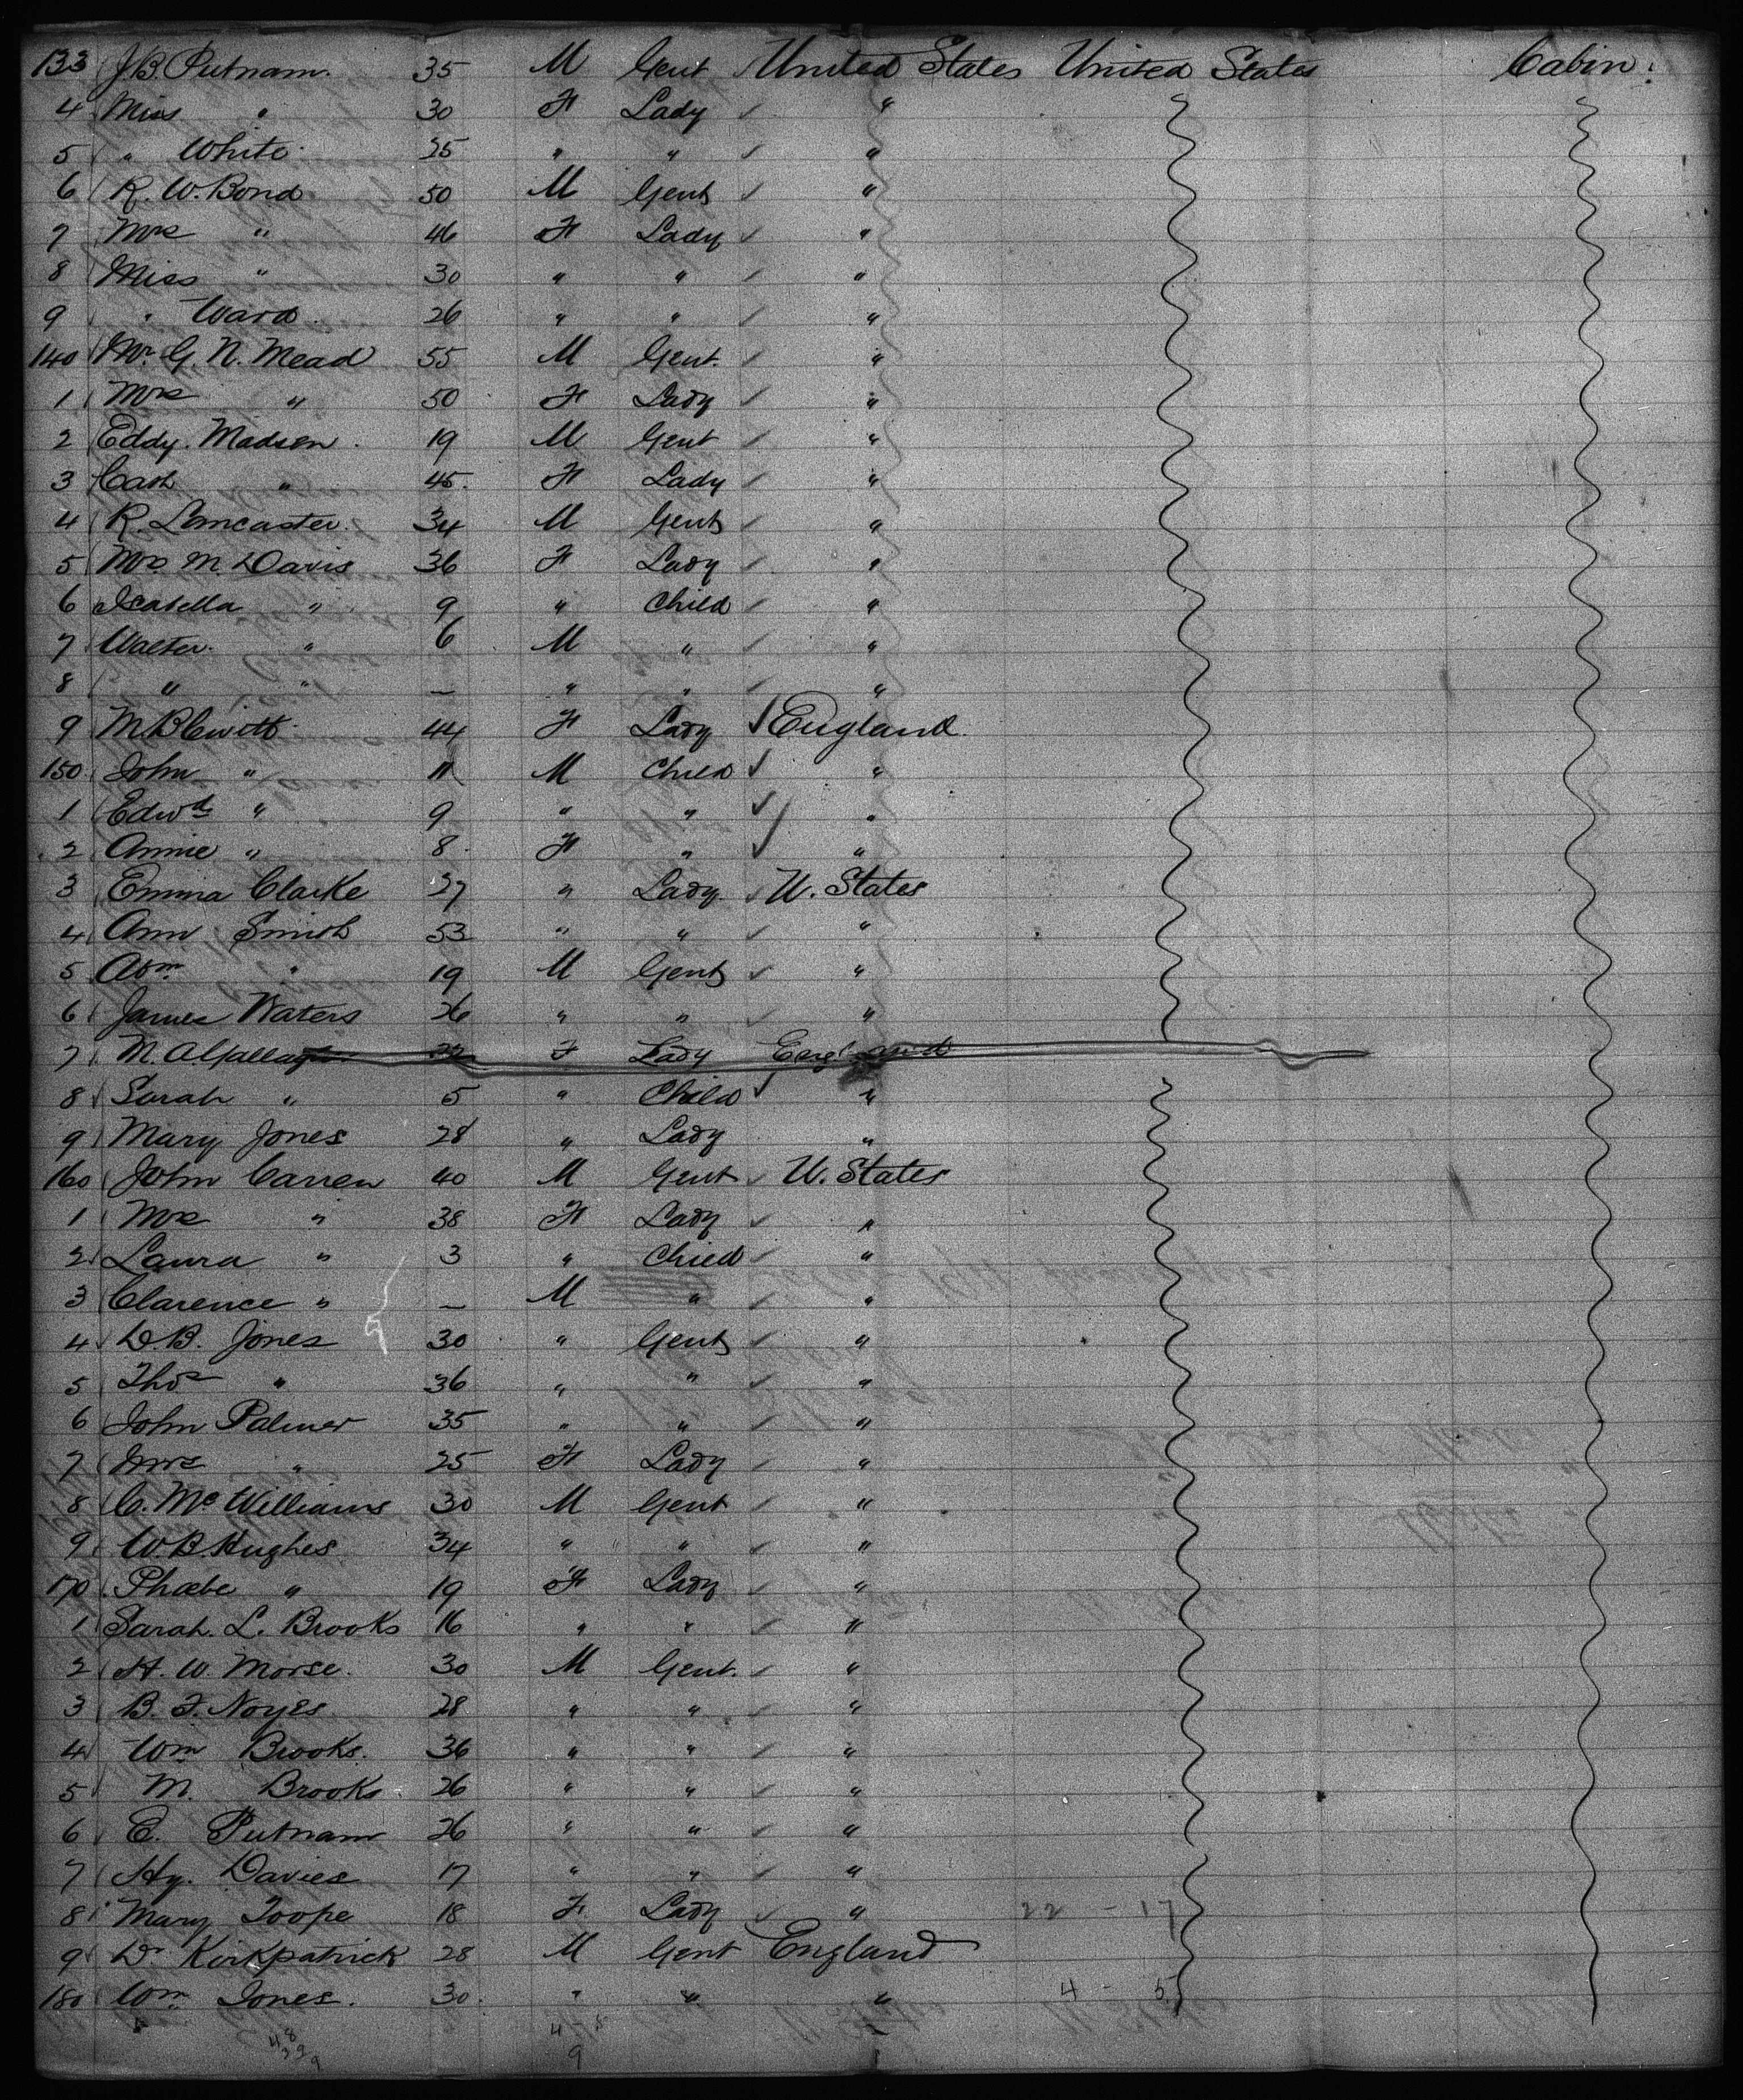 133 J. B. Putnam. 35 M Gent United States United States Cabin.
4 Miss " 30 F Lady "
5 " White. 25 " " "
6 R. W. Bond 50 M Gent "
7 Mrs " 46 F Lady "
8 Miss " 30 " " "
9 " Ward. 26 " " "
140 Mr. G. N. Mead 55 M Gent. "
1 Mrs " 50 F Lady "
2 Eddy. Madsen. 19 M Gent "
3 Cath " 45. F Lady "
4 R. Lancaster. 34 M Gent "
5 Mrs. M. Davis 36 F Lady "
6 Isabella " 9 " Child "
7 Walter. " 6 M " "
8 " " — " " "
9 M. Blewitt 44 F Lady England.
150. John " 11 M Child "
1 Edwd " 9 " " "
2 Annie " 8. F " "
3 Emma Clarke 27 " Lady U. States
4 Ann Smith 53 " " "
5 " 19 M Gent "
6 James Waters 26 " " "
7 M. A. Gallagher F Lady England
8 Sarah " 5 " Child "
9 Mary Jones 28 " Lady "
160 John Carren 40 M Gent U. States
1 Mrs " 38 F Lady "
2 Laura " 3 " Child "
3 Clarence " — M " "
4 D. B. Jones 30 " Gent "
5 Thos " 36 " " "
6 John Palmer 35 " " "
7 Mrs " 25 F Lady "
8 C. Mc Williams 30 M Gent "
9 W. B. Hughes 34 " " "
170 Phoebe " 19 F Lady "
1 Sarah. L. Brooks 16 " " "
2 H. W. Morse. 30 M Gent. "
3 B. F. Noyes 28 " " "
4 Wm Brooks. 36 " " "
5 M. Brooks. 26 " " "
6 E. Putnam 26 " " "
7 Hy. Davies 17 " " "
8 Mary Toope 18 F. Lady " 22 - 17
9 Dr Kirkpatrick 28 M Gent England
180 Wm Jones. 30. " " " 4 - 5